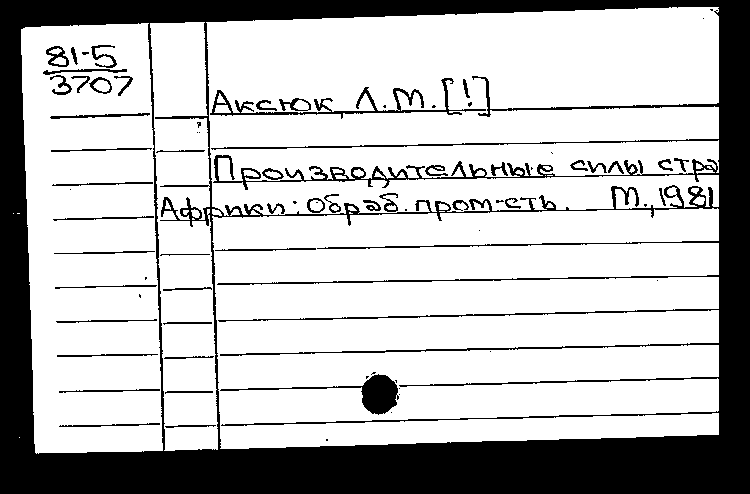 81-5
3707
Аксюк, Л.М. [!]
Производительные силы стра
Африки: Обраб. пром-сть. М., 1981